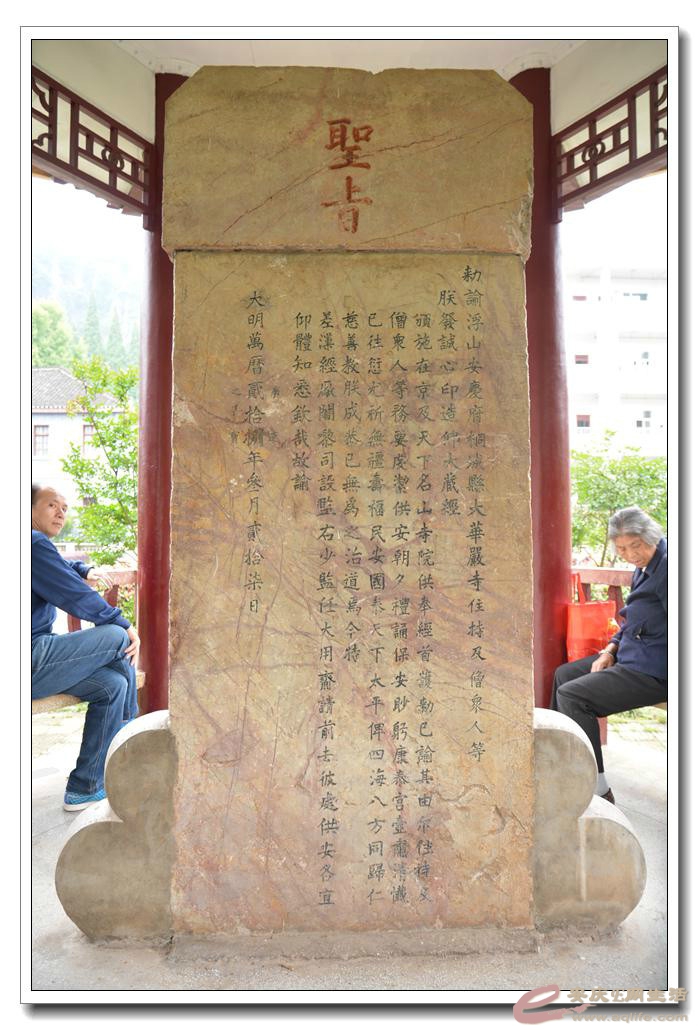 聖旨
勅諭浮山安慶府桐城縣大華嚴寺住持及僧衆人等
朕發誠心印造佛大藏經
頒施在京及天下名山寺院供奉經首護勅已諭其由尔住持及
僧衆人等務要虔潔供安朝夕禮誦保安眇躬康泰宮壼肅清懺
已往愆尤祈無疆壽福民安國泰天下太平俾四海八方同歸仁
慈善教朕成恭己無為之治道焉今特
差漢經厰闍黎司設監右少監任大用齎請前去彼處供安各宜
仰體知悉欽哉故諭
大明萬曆貳拾捌年叁月貳拾柒日
之寶
安庆 生活
www.aqlife.com